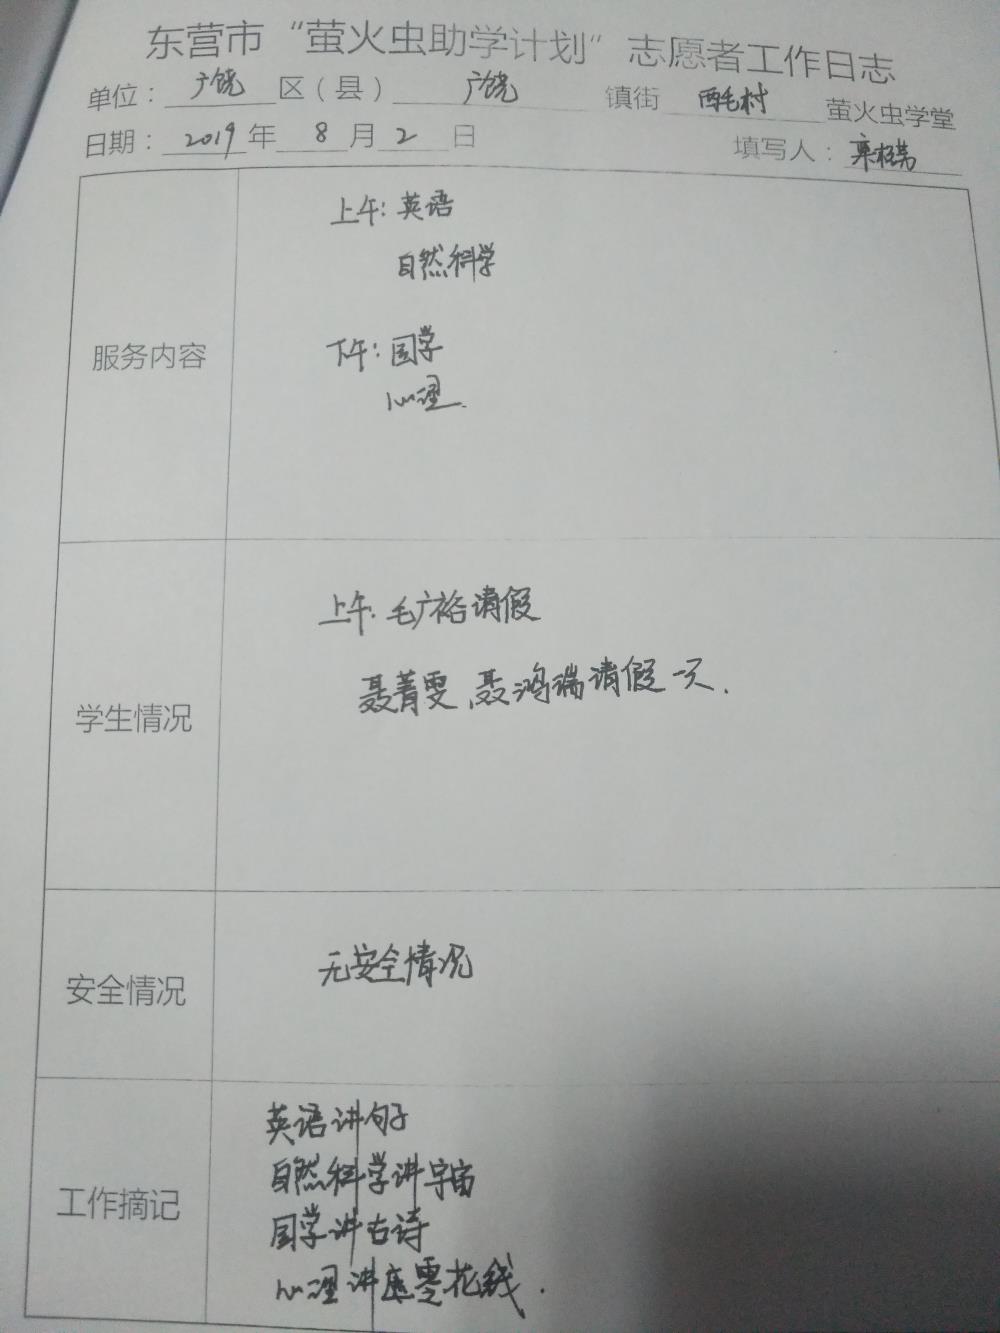 东营市“萤火虫助学计划”志愿者工作日志
单位：广饶区（县）广饶镇街 西毛村 萤火虫学堂
日期：2019年8月2日 填写人：
上午：英语
自然科学
服务内容
下午：国学
心理.
上午.毛广裕请假
聂菁雯、聂鸿瑞请假一天.
学生情况
无安全情况
安全情况
英语讲句子
自然科学讲宇宙
工作摘记
国学讲古诗
心理讲 零花钱.